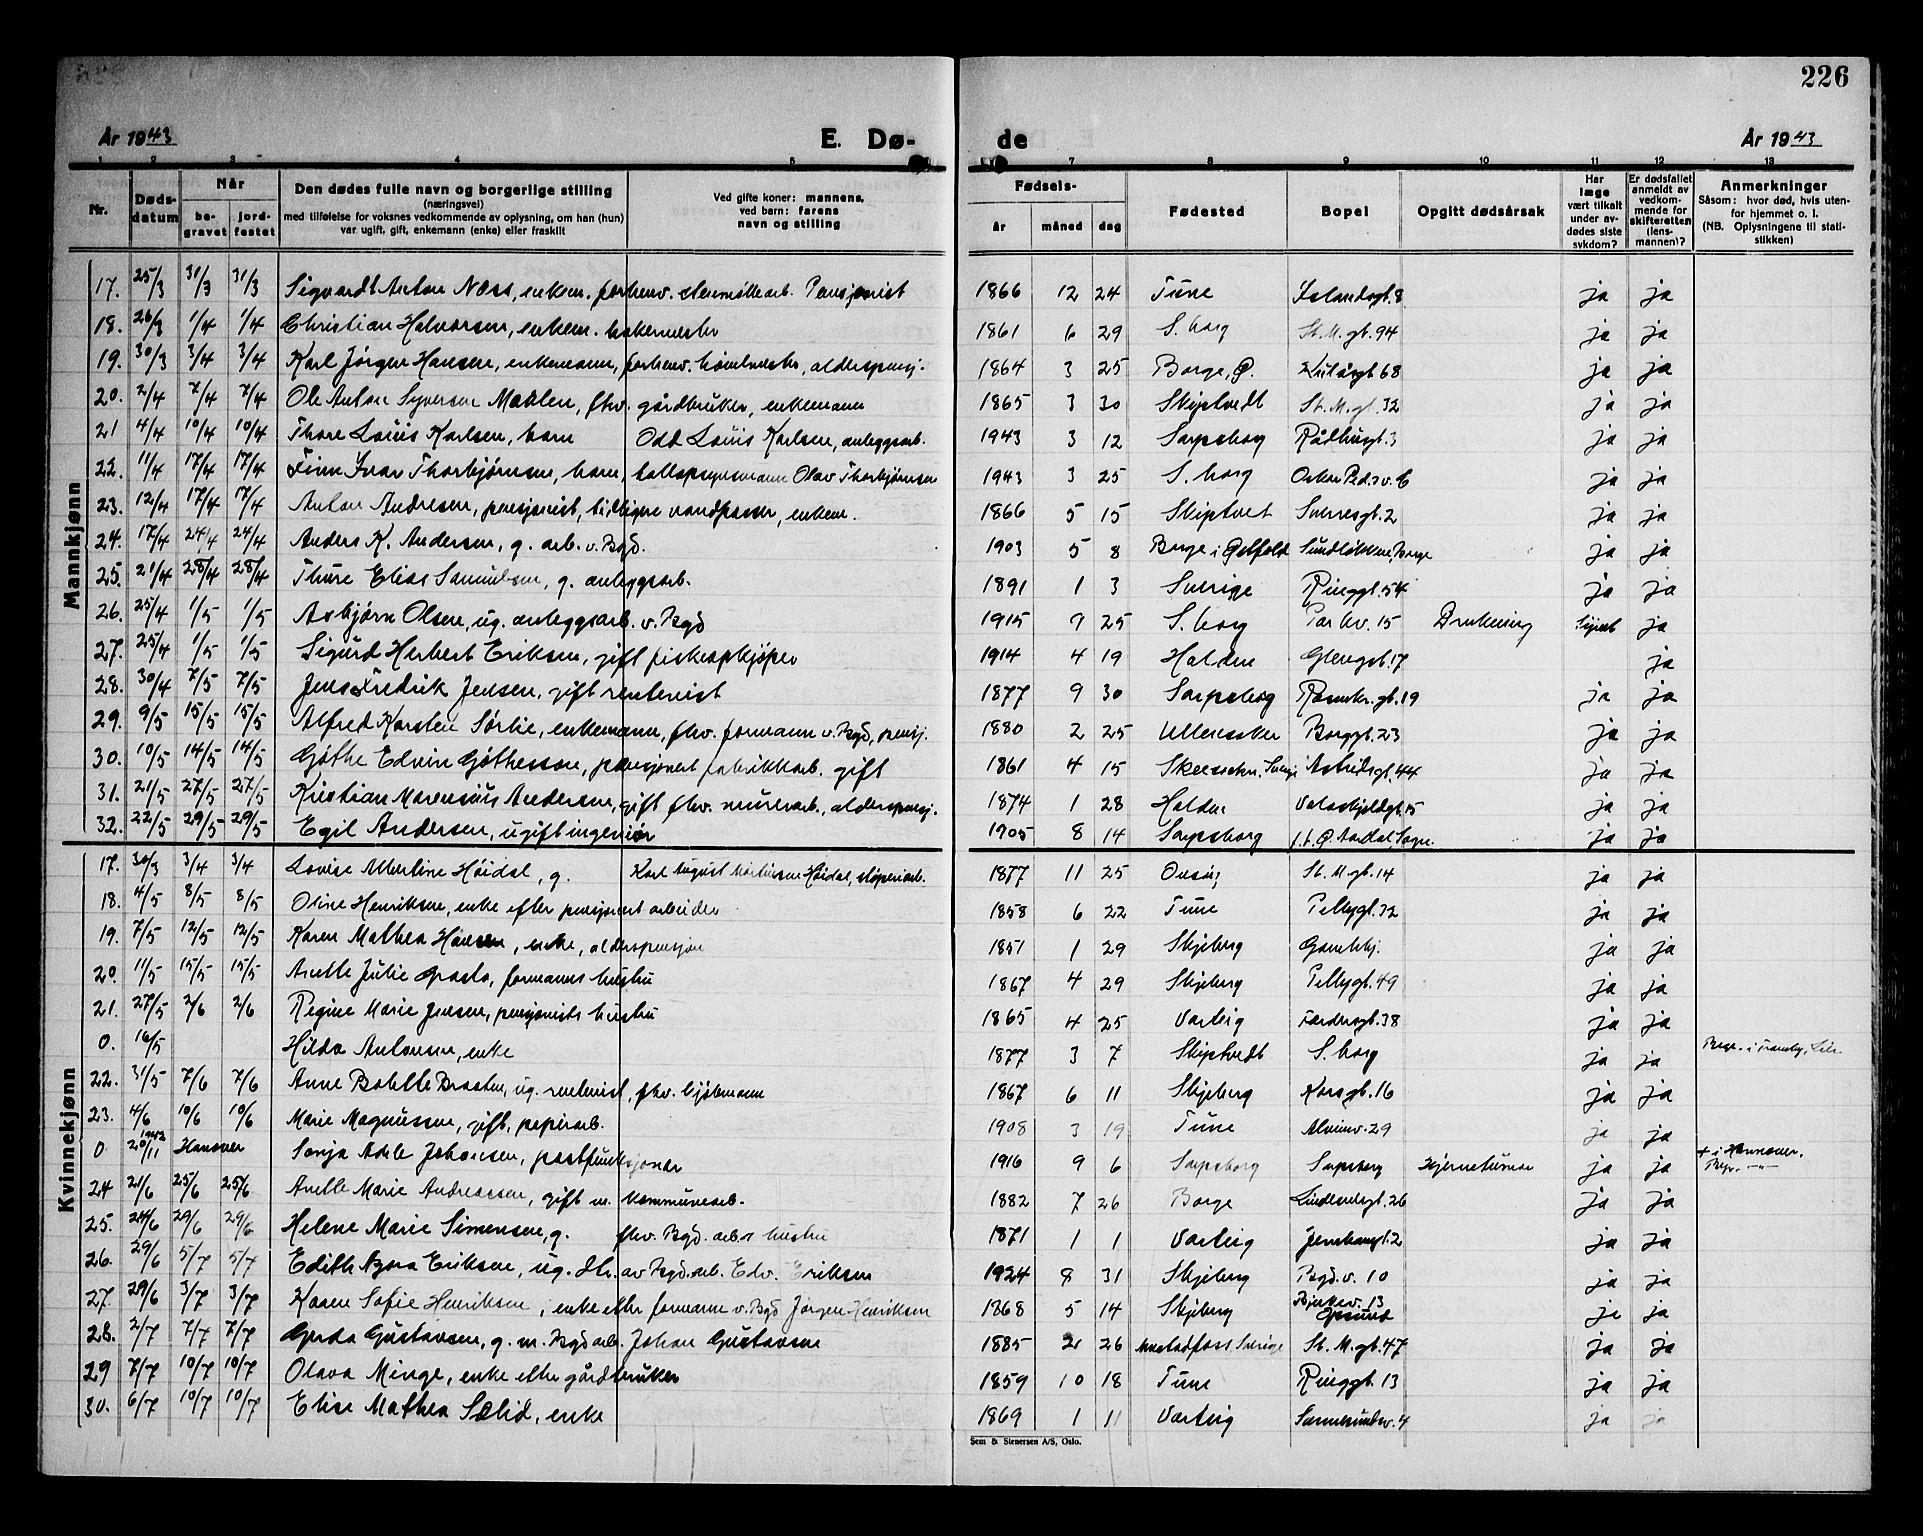 226
År 1943 E. Dø- de År 1943
1 2 3 4 5 7 8 9 10 11 12 13
Nr. Døds-datum Når be-gravet jord-festet Den dødes fulle navn og borgerlige stilling (næringsvei) med tilføielse for voksnes vedkommende av oplysning, om han (hun) var ugift, gift, enkemann (enke) eller fraskilt Ved gifte koner: mannens, ved barn: farens navn og stilling Fødsels- år måned dag Fødested Bopel Opgitt dødsårsak Har læge vært tilkalt under av-dødes siste sykdom? Er dødsfallet anmeldt av vedkom-mende for skifteretten (lens-mannen)? Anmerkninger Såsom: hvor død, hvis uten-for hjemmet o. l. (NB. Oplysningene til stati-stikken)
Mannkjønn
17. 25/3 31/3 31/3 Sigvardt Anton Næss, enkem, forhenv. Pensjonist 1866 12 24 Tune 8 ja ja
18. 26/3 1/4 1/4 Christian Halvorsen, enkem. bakermester 1861 6 29 S. borg St. M. gt. 94 ja ja
19. 30/3 3/4 3/4 Karl Jørgen Hansen, enkemann, forhenv. alderspensj. 1864 3 25 Borge, Ø. 68 ja ja
20. 2/4 7/4 7/4 Ole Anton Syversen Mælen, fhv. gårdbruker, enkemann 1865 3 30 Skiptvedt St. M. gt. 32 ja ja
21 4/4 10/4 10/4 Thore Louis Karlsen, barn Odd Louis Karlsen, anleggsarb. 1943 3 12 Sarpsborg Rådhusgt. 3 ja ja
22. 11/4 17/4 17/4 Finn Ivar Thorbjørnsen, barn, Olav Thorbjørnsen 1943 3 25 S. borg Oskar Ped.s v. 6 ja ja
23. 12/4 17/4 17/4 Anton Andresen, pensjonist, tidligere vandpasser, enkem. 1866 5 15 Skiptvet Sverresgt. 2 ja ja
24. 17/4 24/4 24/4 Anders K. Andersen, g. arb. v. Bgd. 1903 5 8 Borge i Østfold Sundløkken, Borge ja ja
25. 21/4 28/4 28/4 Thure Elias Samuelsen, g. anleggsarb. 1891 1 3 Sverige Ringgt. 54 ja ja
26. 25/4 1/5 1/5 Asbjørn Olsen, ug. anleggsarb. v. Bgd 1915 9 25 S. borg Parkv. 15 Drukning ja
27. 25/4 1/5 1/5 Sigurd Herbert Eriksen, gift fiskeopkjøper 1914 4 19 Halden Glengsgt. 17 ja
28. 30/4 7/5 7/5 Jens Fredrik Jensen, gift rentenist 1877 9 30 Sarpsborg Rosenkr. gt. 19 ja ja
29. 9/5 15/5 15/5 Alfred Karsten Sørlie, enkemann, fhv. formann v. Bgd, pensj. 1880 2 25 Ullensaker Borggt. 23 ja ja
30. 10/5 14/5 14/5 Gøthe Edvin Gøthesson, pensjonert fabrikkarb. gift 1861 4 15 Sverige Astridsgt. 44 ja ja
31. 21/5 27/5 27/5 Kristian Marensius Andersen, gift fhv. murerarb., alderspensj. 1874 1 28 Halden Valaskjoldgt. 15 ja ja
32. 22/5 29/5 29/5 Egil Andersen, ugift ingeniør 1905 8 14 Sarpsborg f. t. Ø. Aardal, Sogn. ja ja
Kvinnekjønn
17. 30/3 3/4 3/4 Lovise Albertine Høidal, g. Karl August Martinsen Høidal, sliperiarb. 1877 11 25 Onsøy St. M. gt. 14 ja ja
18. 4/5 8/5 8/5 Oline Henriksen, enke efter pensjonert arbeider 1858 6 22 Tune Pellygt. 32 ja ja
19. 7/5 12/5 12/5 Karen Mathea Hansen, enke, alderspensjon 1851 1 29 Skjeberg Gamlehj. ja ja
20. 11/5 15/5 15/5 Anette Julie Grasto, formanns hustru 1867 4 29 Skjeberg Pellygt. 49 ja ja
21. 27/5 2/6 2/6 Regine Marie Jensen, pensjonists hustru 1865 4 25 Varteig Færdersgt. 38 ja ja
0. 16/5 Hilda Antonsen, enke 1877 3 7 Skiptvedt S. borg ja ja Begr. i
22. 31/5 7/6 7/6 Anne Bolette Braaten, ug. rentenist, fhv. 1867 6 11 Skjeberg Korsgt. 16 ja ja
23. 4/6 10/6 10/6 Marie Magnussen, gift, papirarb. 1908 3 19 Tune Alvimv. 29 ja ja
0 1942 20/11 Hanover Sonja Adele Johansen, postfunksjonær 1916 9 6 Sarpsborg Sarpsborg Hjernetumor ja ja + i Hannover. Begr. -"-
24. 21/6 25/6 25/6 Anette Marie Andreassen, gift m. kommunearb. 1882 7 26 Borge 26 ja ja
25. 24/6 29/6 29/6 Helene Marie Simensen, g. fhv. Bgd. arb.s hustru 1871 1 1 Varteig 2 ja ja
26. 29/6 5/7 5/7 Edith Azora Eriksen, ug. dtr. av Bgd. arb. Edv. Eriksen 1924 8 31 Skjeberg Bgd. v. 10 ja ja
27. 29/6 3/7 3/7 Karen Sofie Henriksen, enke efter formann v. Bgd Jørgen Henriksen 1868 5 14 Skjeberg Bjerkev. 13 Opsund ja ja
28. 2/7 7/7 7/7 Gerda Gustavsen, g. m. Bgd arb. Johan Gustavsen 1885 2 26 Sverige St. M. gt. 47 ja ja
29 7/7 10/7 10/7 Olava Minge, enke efter gårdbruker 1859 10 18 Tune Ringgt. 13 ja ja
30. 6/7 10/7 10/7 Elise Mathea Sælid, enke 1869 1 11 Varteig Sannesundsv. 4 ja ja
Sem & Stenersen A/S, Oslo.